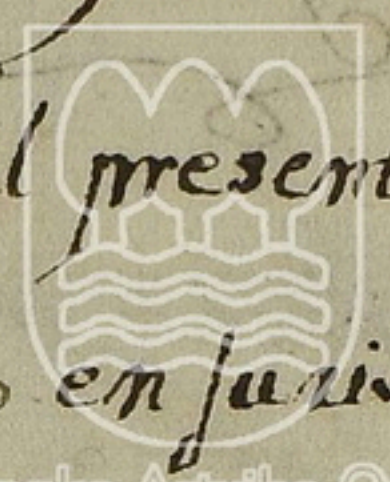 l present
en juris